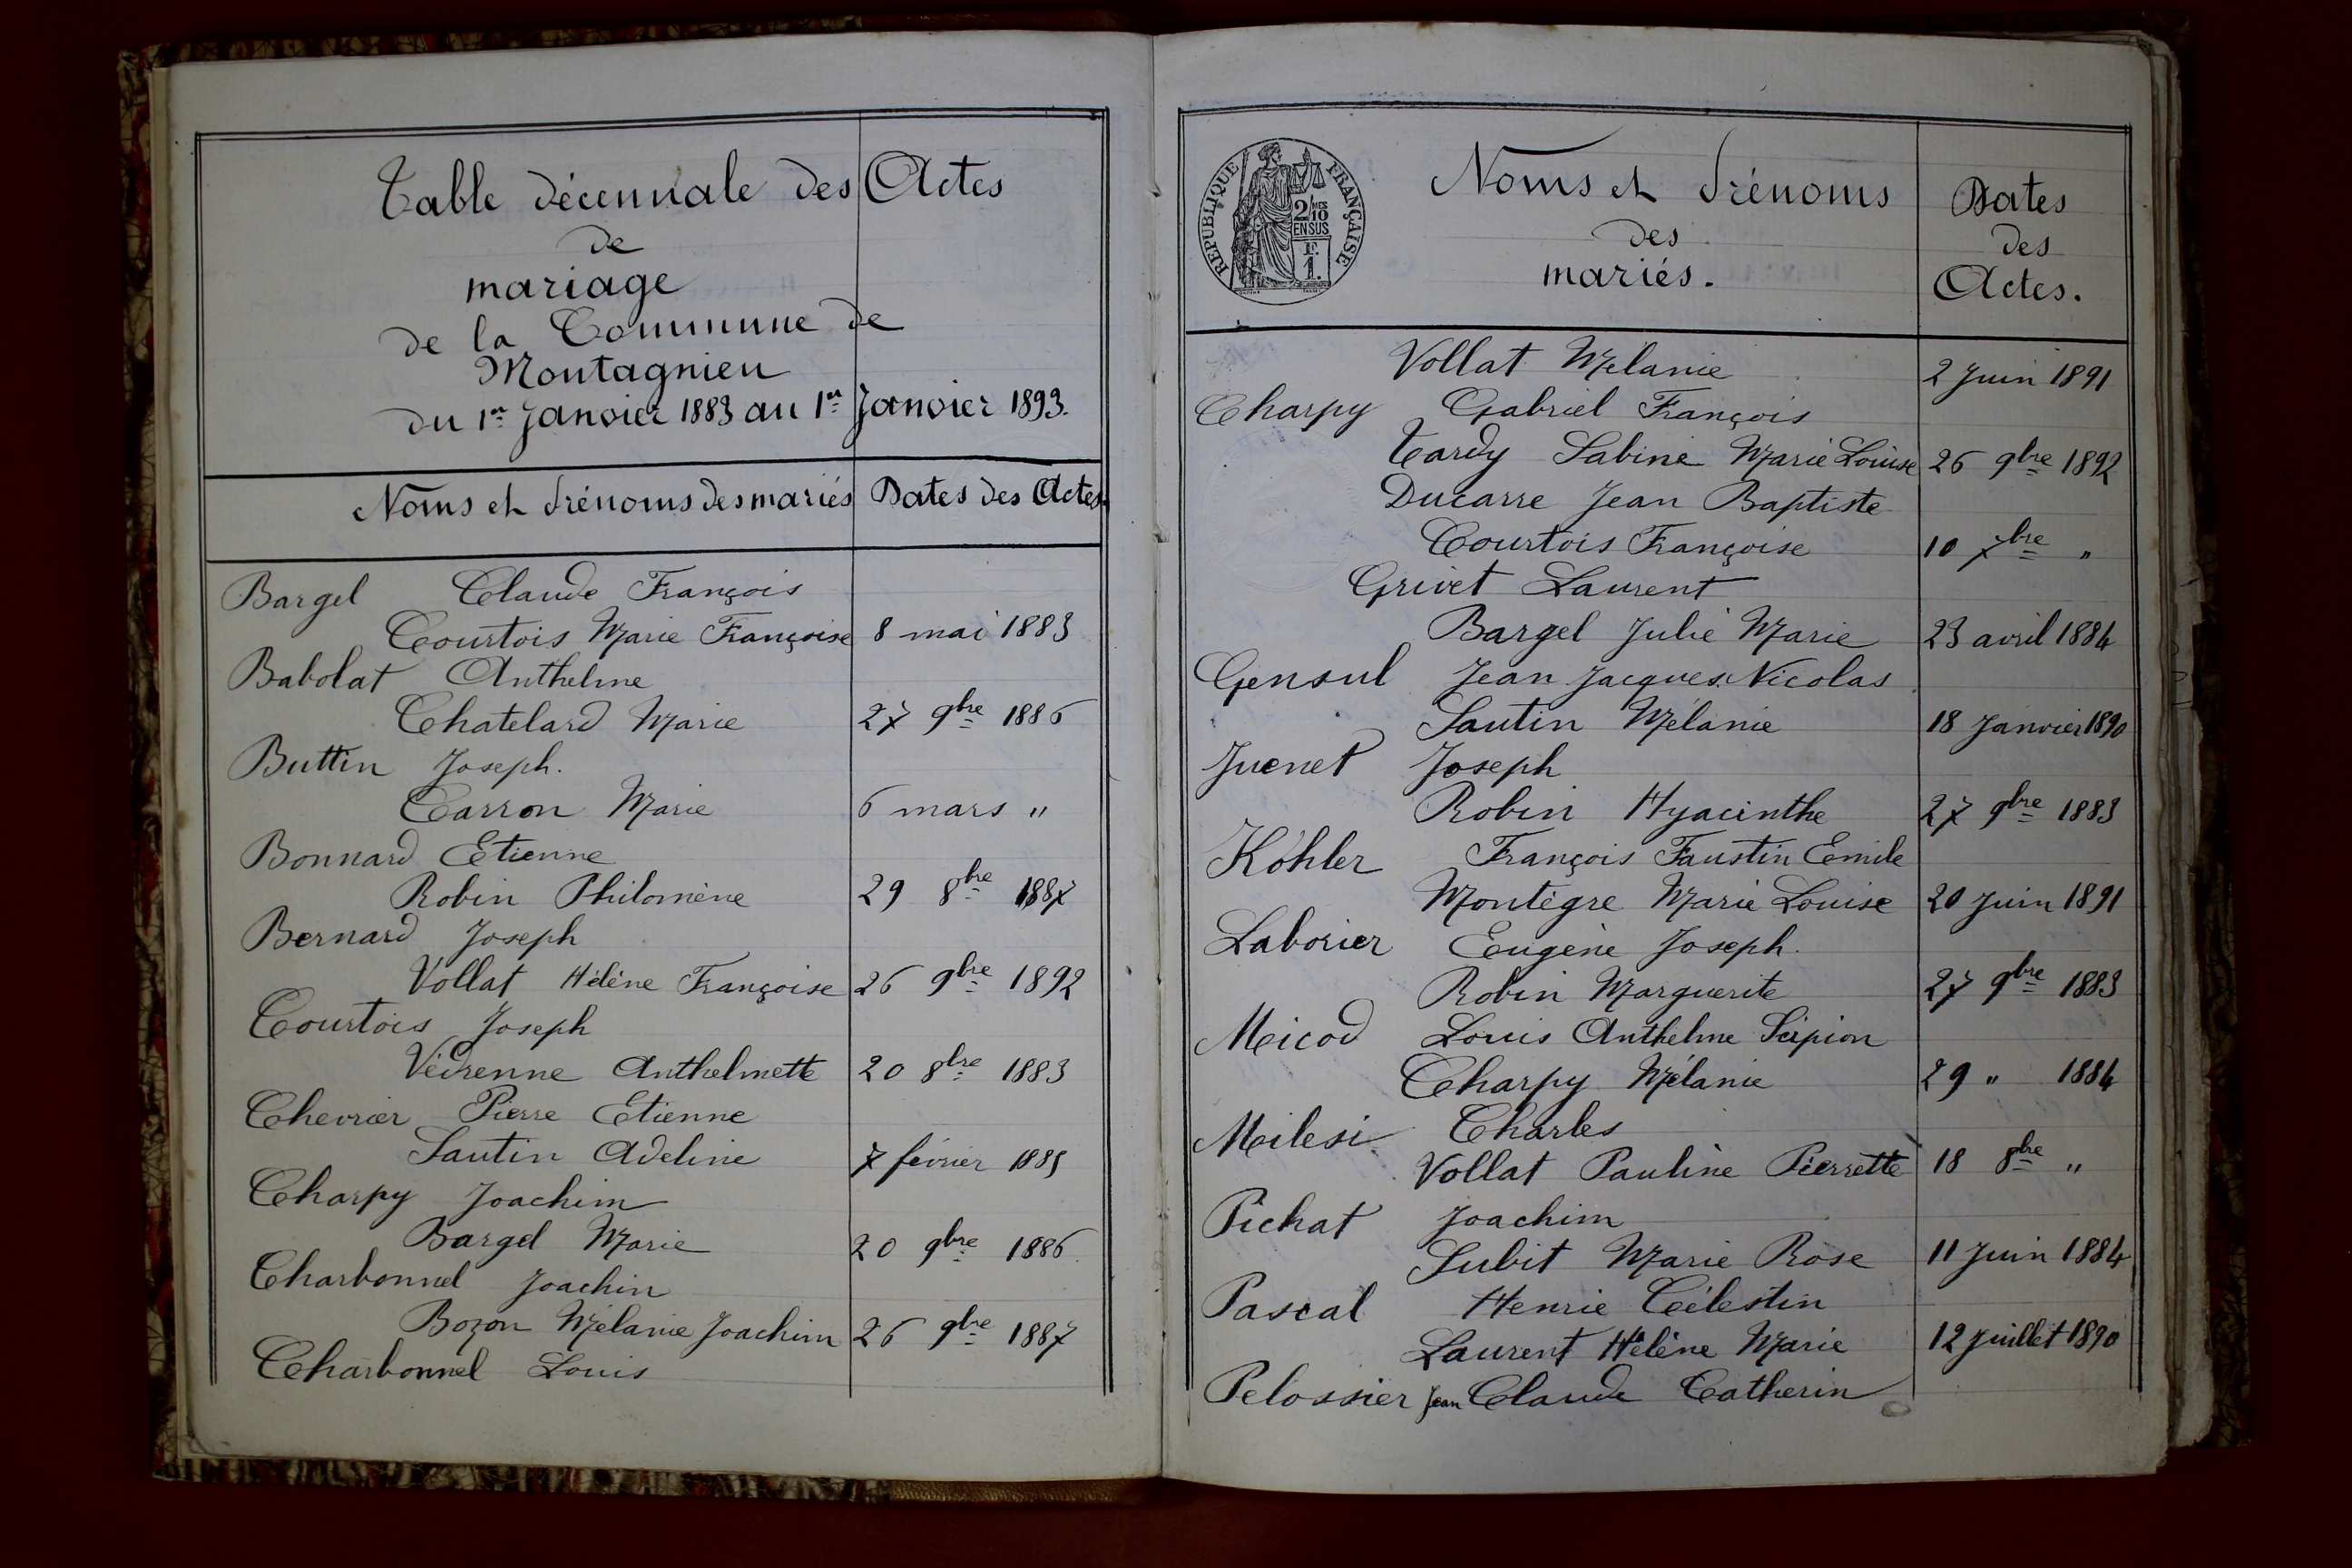 Table décennale des Actes
de
mariage
de la Commune de
Montagnieu
du 1er Janvier 1883 au 1er Janvier 1893.
Noms et Prénoms des mariés Dates des Actes
Bargel Claude François
Courtois Marie Françoise 8 mai 1883
Babolat Anthelme
Chatelard Marie 27 9bre 1886
Buttin Joseph.
Carron Marie 6 mars "
Bonnard Etienne
Robin Philomène 29 8bre 1887
Bernard Joseph
Vollat Hélène Françoise 26 9bre 1892
Courtois Joseph
Védrenne Anthelmette 20 8bre 1883
Chevrier Pierre Etienne
Sautin Adeline 7 février 1885
Charpy Joachim
Bargel Marie 20 9bre 1886
Charbonnel Joachin
Bozon Mélanie Joachim 26 9bre 1887
Charbonnel Louis
RÉPUBLIQUE FRANÇAISE
2/10MES
EN SUS
F.
1.
Noms et Prénoms
des
mariés.
Dates
des
Actes.
Vollat Mélanie 2 Juin 1891
Charpy Gabriel François
Tardy Sabine Marie Louise 26 9bre 1892
Ducarre Jean Baptiste
Courtois Françoise 10 7bre "
Grivet Laurent
Bargel Julie Marie 23 avril 1884
Gensul Jean Jacques Nicolas
Sautin Mélanie 18 Janvier 1890
Juenet Joseph
Robin Hyacinthe 27 9bre 1883
Köhler François Faustin Emile
Montègre Marie Louise 20 Juin 1891
Laborier Eugène Joseph.
Robin Marguerite 27 9bre 1883
Micod Louis Anthelme Scipion
Charpy Mélanie 29 " 1884
Milesi Charles
Vollat Pauline Pierrette 18 8bre "
Pichat Joachim
Subit Marie Rose 11 Juin 1884
Pascal Henrie Célestin
Laurent Hélène Marie 12 Juillet 1890
Pelossier Jean Claude Catherin